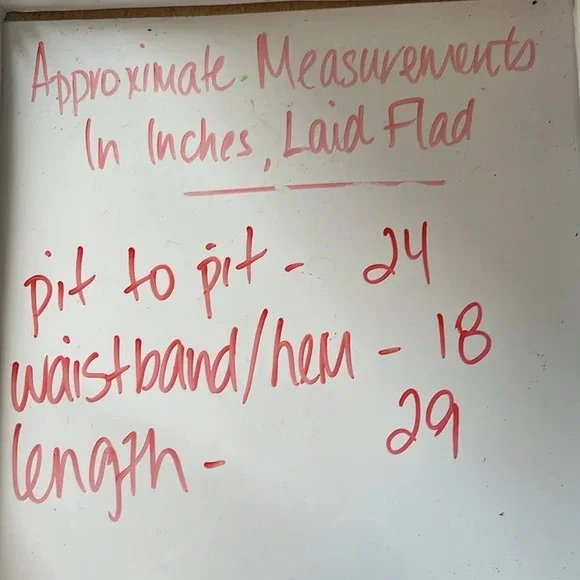 Approximate Measurements
In Inches, Laid Flad
pit to pit - 24
waistband/hem - 18
length - 29